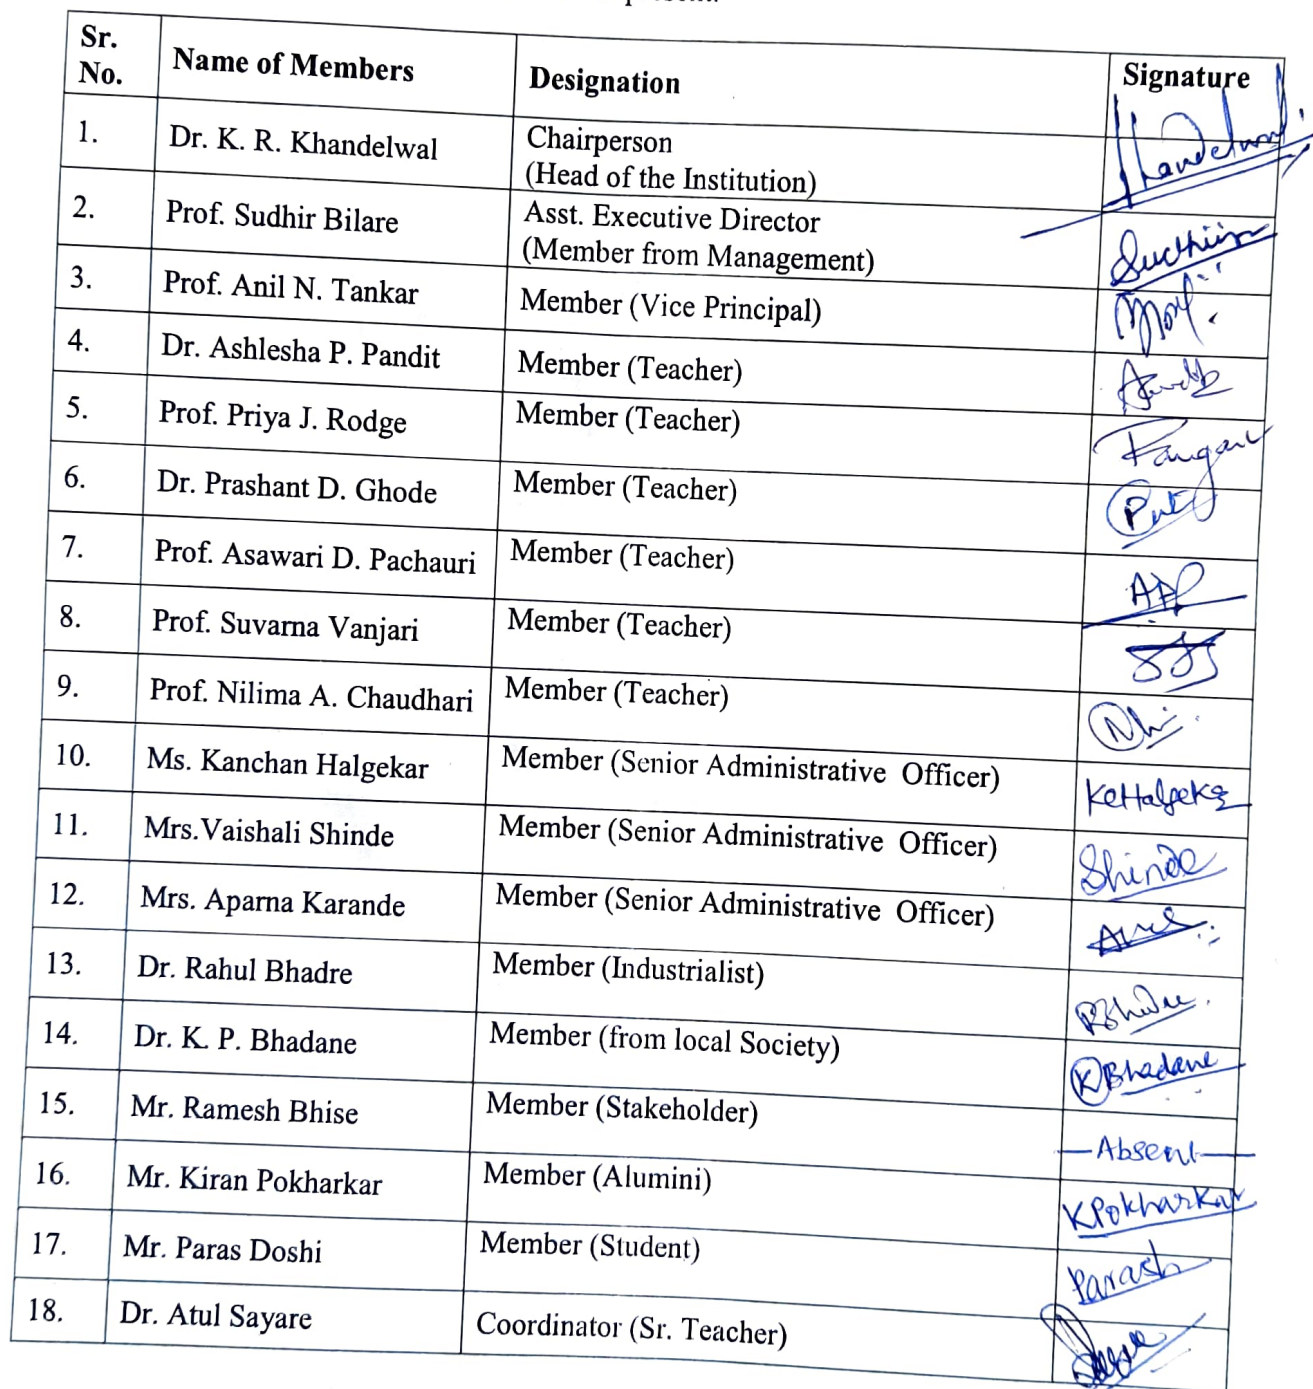 Sr. No. Name of Members Designation Signature
1. Dr. K. R. Khandelwal Chairperson
(Head of the Institution) Khandelwal
2. Prof. Sudhir Bilare Asst. Executive Director
(Member from Management) Sudhir
3. Prof. Anil N. Tankar Member (Vice Principal)
4. Dr. Ashlesha P. Pandit Member (Teacher)
5. Prof. Priya J. Rodge Member (Teacher)
6. Dr. Prashant D. Ghode Member (Teacher)
7. Prof. Asawari D. Pachauri Member (Teacher) ADP
8. Prof. Suvarna Vanjari Member (Teacher)
9. Prof. Nilima A. Chaudhari Member (Teacher)
10. Ms. Kanchan Halgekar Member (Senior Administrative Officer)
11. Mrs.Vaishali Shinde Member (Senior Administrative Officer) Shinde
12. Mrs. Aparna Karande Member (Senior Administrative Officer)
13. Dr. Rahul Bhadre Member (Industrialist)
14. Dr. K. P. Bhadane Member (from local Society) K Bhadane
15. Mr. Ramesh Bhise Member (Stakeholder) —Absent—
16. Mr. Kiran Pokharkar Member (Alumini) KPokharkar
17. Mr. Paras Doshi Member (Student) Parash
18. Dr. Atul Sayare Coordinator (Sr. Teacher)